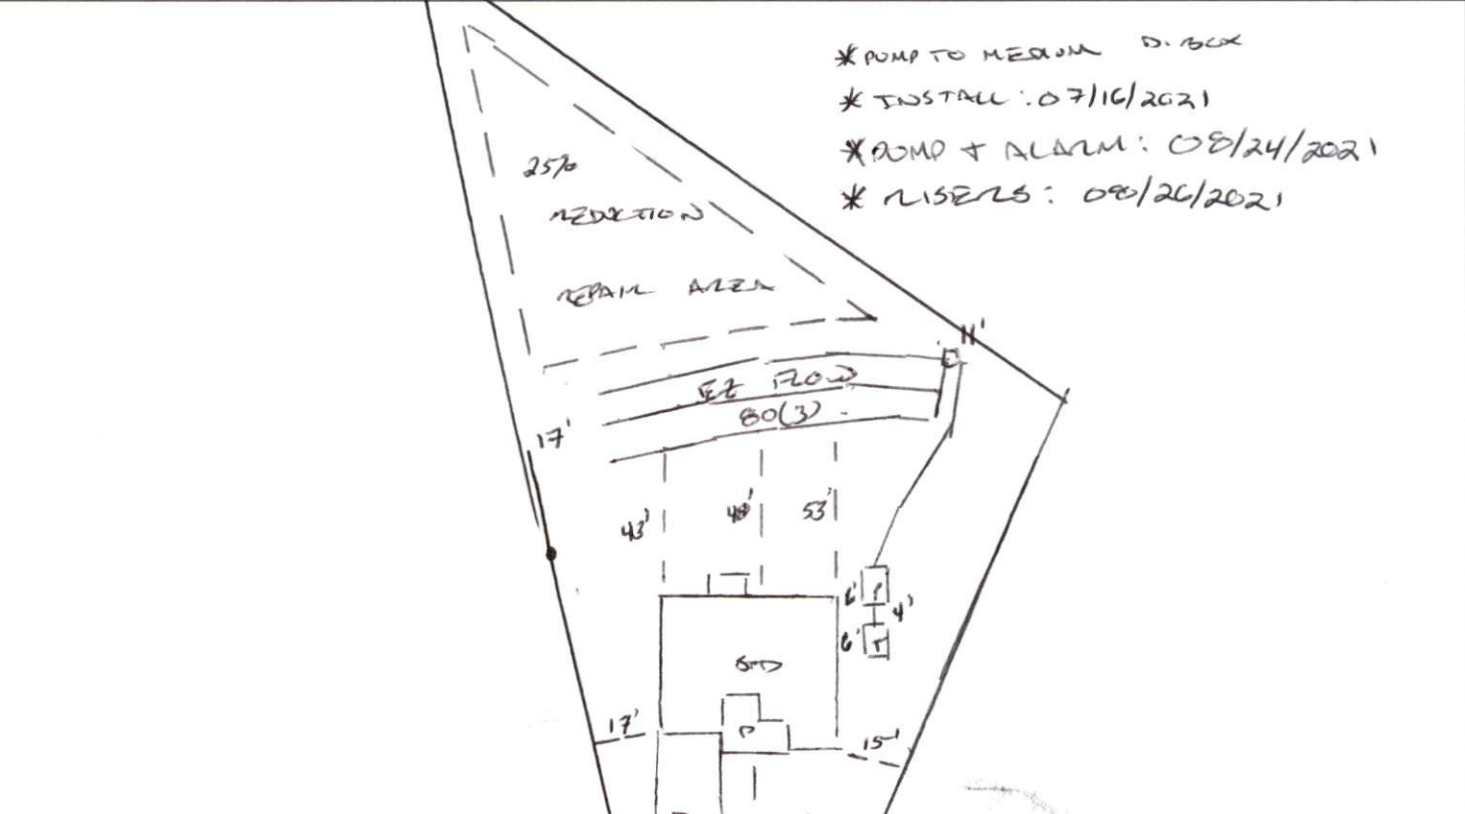 *PUMP TO MEDIUM D-BOX
* INSTALL: 07/16/2021
*PUMP + ALARM: 08/24/2021
* RISERS: 08/26/2021
25%
REDUCTION
REPAIR AREA
11'
EZ FLOW
80(3)
17'
43'
48'
53'
6'
P
4'
6'
T
P
17'
15'